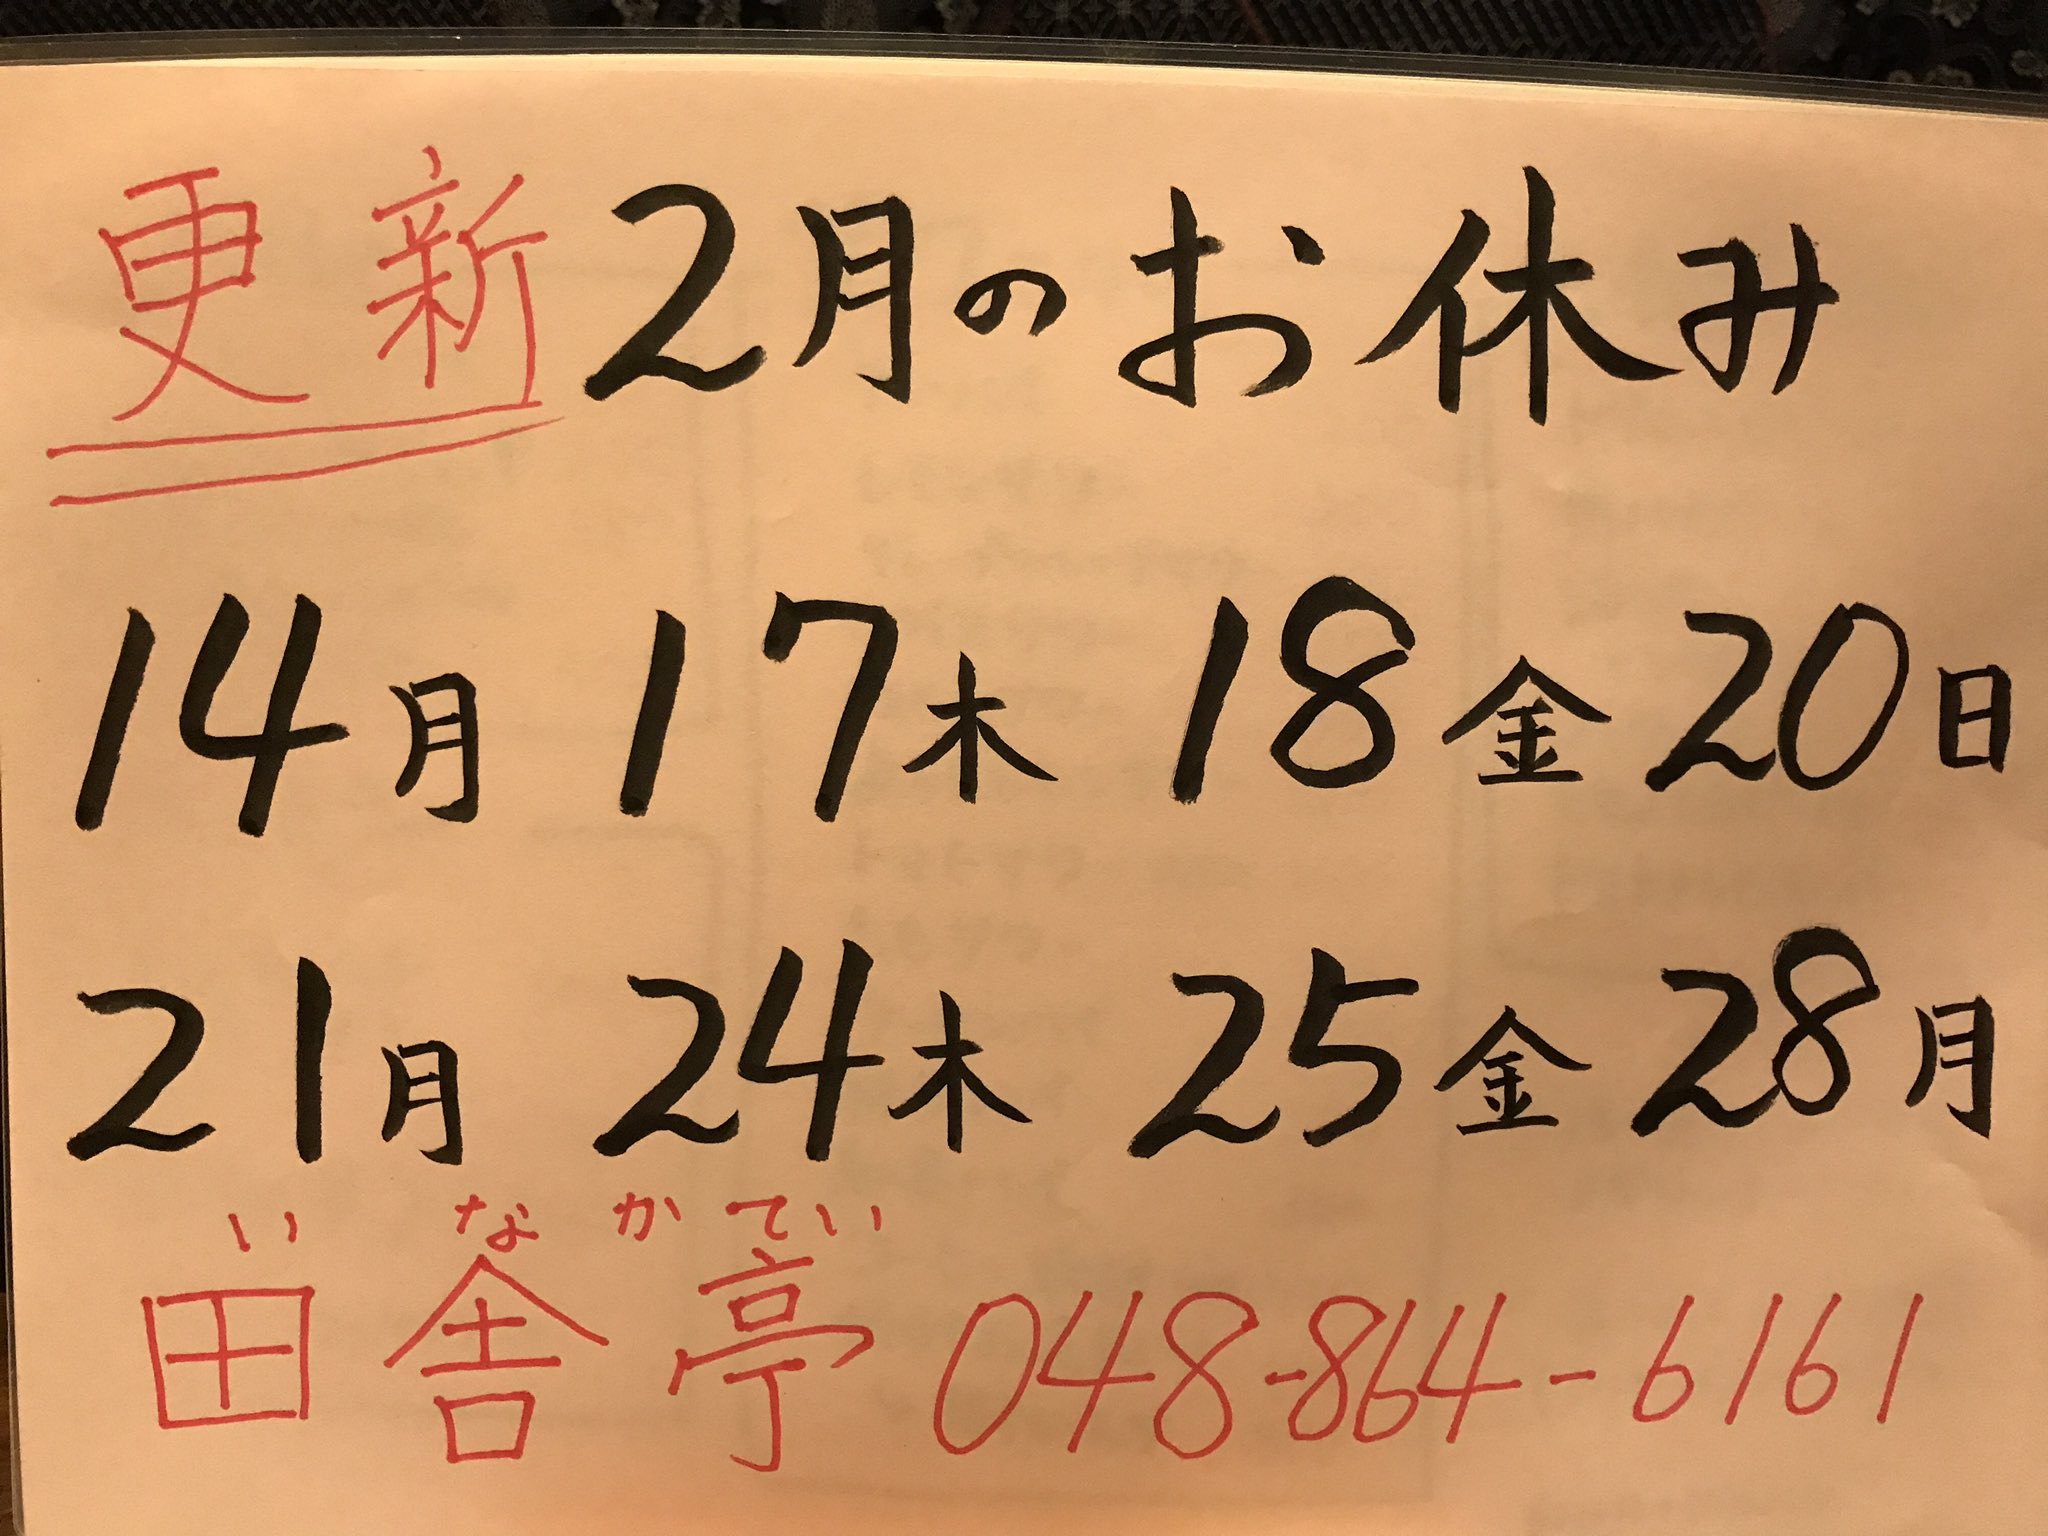 更新 2月のお休み
14月 17木 18金 20日
21月 24木 25金 28月
いなかてい
田舎亭 048-864-6161